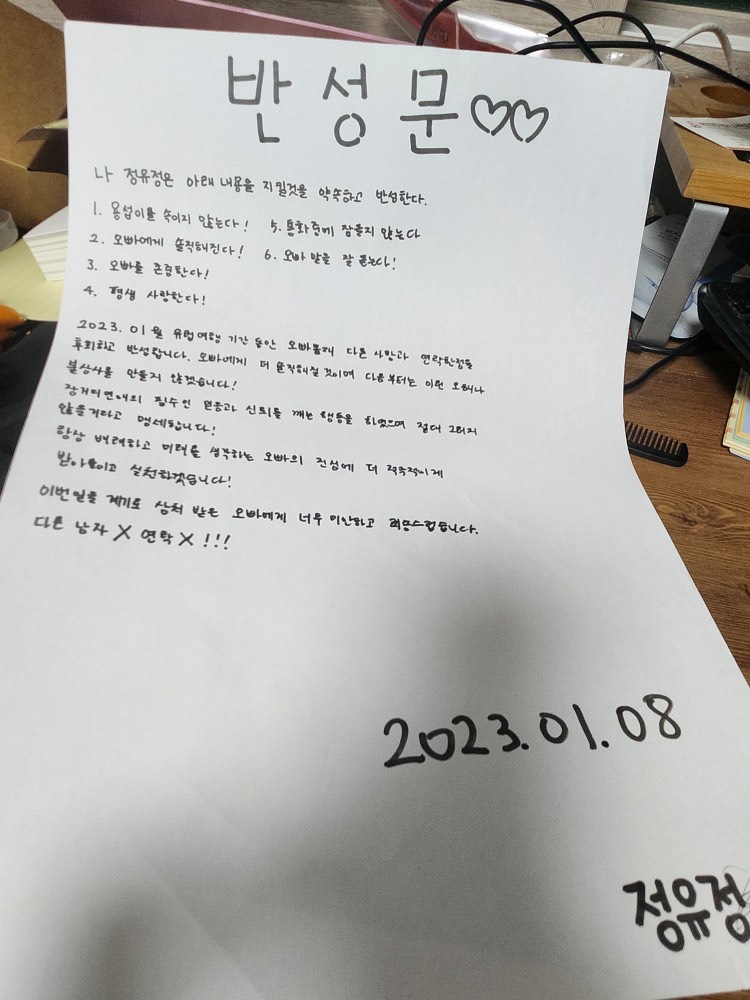 반성문♡♡
나 정유정은 아래 내용을 지킬것을 약속하고 반성한다.
1. 용섭이를 속이지 않는다! 5. 통화중에 잠들지 않는다
2. 오빠에게 솔직해진다! 6. 오빠 말을 잘 듣는다!
3. 오빠를 존중한다!
4. 평생 사랑한다!
2023. 01월 유럽여행 기간 동안 오빠몰래 다른 사람과 연락한점을
후회하고 반성합니다. 오빠에게 더 솔직해질 것이며 다음부터는 이런 오해나
불상사를 만들지 않겠습니다!
장거리연애의 필수인 믿음과 신뢰를 깨는 행동을 하였으며 절대 그러지
않을거라고 맹세합니다!
항상 배려하고 미래를 생각하는 오빠의 진심에 더 적극적이게
받아들이고 실천하겠습니다!
이번일을 계기로 상처 받은 오빠에게 너무 미안하고 죄송스럽습니다.
다른 남자 X 연락 X !!!
2023.01.08
정유정